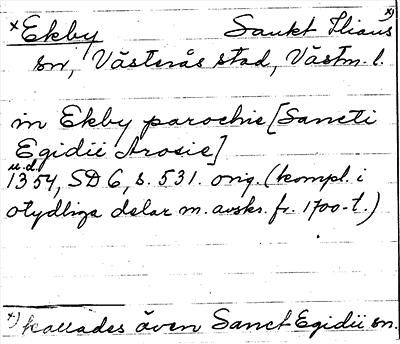 x Ekby Sankt Ilians x)
sn, Västerås stad, Västm. l.
in Ekby parochie [Sancti
Egidii Arosie]
u.d.
1354, SD 6, s. 531. orig. (kompl. i
otydliga delar m. avskr. fr. 1700-t.)
x) kallades även Sanct Egidii sn.